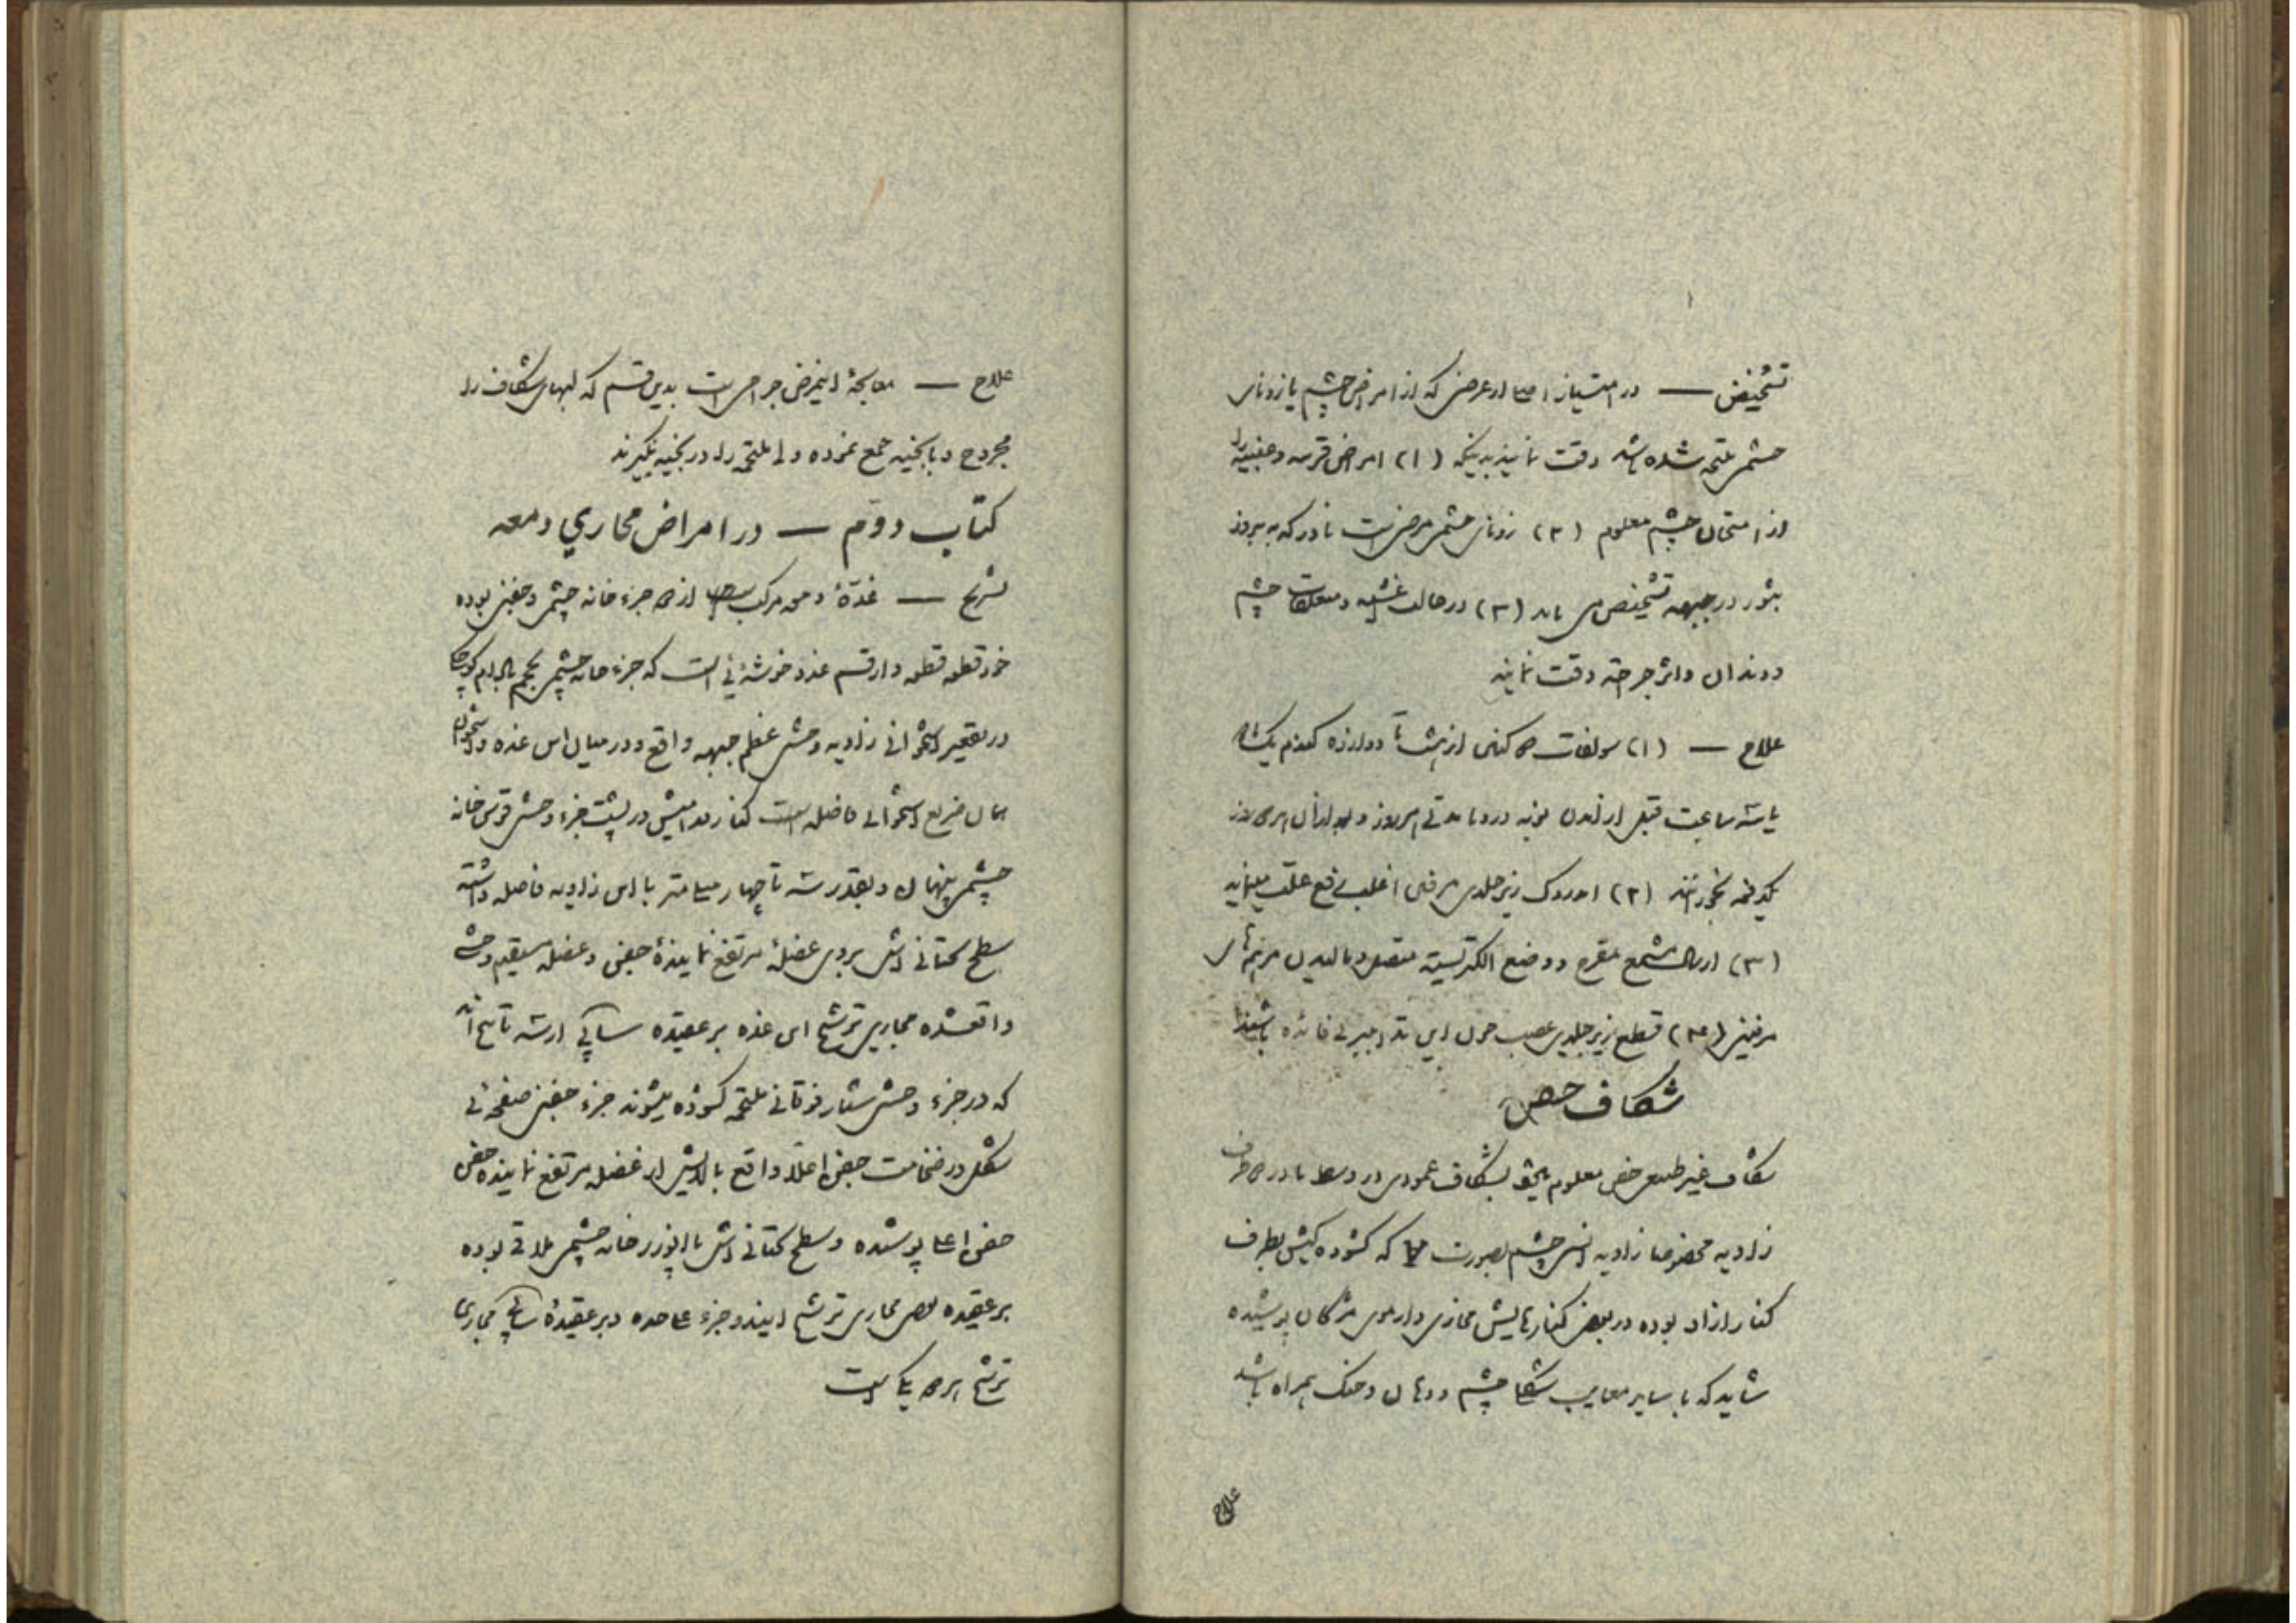 تشخیص — در امتیاز اعصا از عرضی که از امراض چشم یا زونای
چشمی ملتحمه شده باشد دقت نمایند بدینکه (۱) امراض قرنیه و عنبیه را
از امتحان چشم معلوم (۲) زونای چشمی مرضی است نادر که به بروز
بثور در جبهه تشخیص می یابد (۳) در حالت غشیه و متعلقات چشم
و دندان و اثر جراحت دقت نمایند
علاج — (۱) سولفات دو کنین از هشت تا دوازده گندم یک
یا سه ساعت قبل از آمدن نوبه درد تا مدتی هر روز و بعد از آن هر دو روز
یکدفعه بخورانند (۲) زیر جلدی مرفین اغلب رفع علت مینماید
(۳) ارسال مشمع مقرح و وضع الکتریسیته متصل و مالیدن مرهمهای
مرفین (۴) قطع زیر جلدی عصب چون این تدابیر بی فائده باشند
شکاف جفن
شکاف غیر طبیعی جفن معلوم میشود بشکاف عمودی در وسط یا در دو طرف
زاویه مخصوصا زاویه انسی چشم بصورت که گشوده گیش بطرف
کنار آزاد بوده در بعضی کنارهایش مجازی و از موی مژگان پوشیده
شاید که با سایر معایب شکل چشم و دهان و حنک همراه باشد
علاج
علاج — معالجهٔ اینمرض جراحی است بدین قسم که لبهای شکاف را
مجروح و با بخیه جمع نموده ولی ملتحمه را در بخیه نگیرند
کتاب دوّم — در امراض مجاری دمعه
تشریح — غدّهٔ دمعه مرکب است از دو جزء خانه چشمی و جفنی بوده
خود قطعه قطعه و از قسم غدد خوشهٔ‌ئی است که جزء خانه چشمی بحجم بادام کوچک
در تقعیر استخوانی زاویه وحشی عظم جبهه واقع و در میان این غده و استخوان
ضریع استخوانی فاصله است کنار قدامیش در پشت جزء وحشی قوس خانه
چشمی پنهان و بقدر سه تا چهار میلیمتر با این زاویه فاصله داشته
سطح تحتانی اش بروی عضلهٔ مرتفع نمایندهٔ جفن و عضله مستقیم وحشی
واقعشده مجاری ترشح این غده بر عقیده ساپی از سه تا پنج اند
که در جزء وحشی فوقانی ملتحمه گشوده میشوند جزء جفنی صفحه‌ئی
شکل در ضخامت جفن اعلا واقع بالایش از عضله مرتفع نماینده جفن
جفن اعلی پوشیده و سطح تحتانی اش با خانه چشمی ملاقی بوده
بر عقیده بعضی مجاری ترشح ایندو جزء علاحده و بر عقیدهٔ ساپی مجاری
ترشح هر دو یکی است